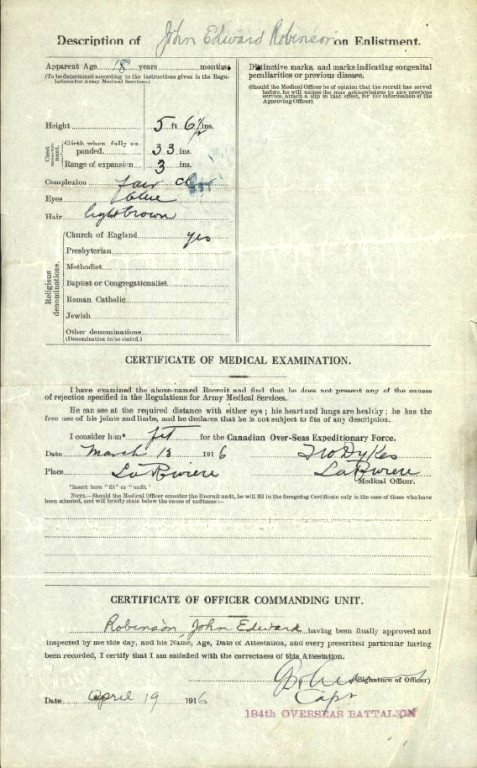 Description of John Edward Robinson on Enlistment.
Apparent Age 18 years months.
(To be determined according to the instructions given in the Regu-
lations for Army Medical Services.)
Height 5 ft 6½ ins.
Chest measurement.
Girth when fully ex-
panded 33 ins.
Range of expansion 3 ins.
Complexion fair
Eyes blue
Hair light brown
Religious denominations.
Church of England yes
Presbyterian
Methodist
Baptist or Congregationalist
Roman Catholic
Jewish
Other denominations
(Denomination to be stated.)
Distinctive marks, and marks indicating congenital
peculiarities or previous disease.
(Should the Medical Officer be of opinion that the recruit has served
before, he will, unless the man acknowledges to any previous
service, attach a slip to that effect, for the information of the
Approving Officer).
CERTIFICATE OF MEDICAL EXAMINATION.
I have examined the above-named Recruit and find that he does not present any of the causes
of rejection specified in the Regulations for Army Medical Services.
He can see at the required distance with either eye; his heart and lungs are healthy; he has the
free use of his joints and limbs, and he declares that he is not subject to fits of any description.
I consider him* fit for the Canadian Over-Seas Expeditionary Force.
Date March 13 1916
Place La Riviere La Riviere
Medical Officer.
*Insert here "fit" or "unfit."
NOTE.—Should the Medical Officer consider the Recruit unfit, he will fill in the foregoing Certificate only in the case of those who have
been attested, and will briefly state below the cause of unfitness:—
CERTIFICATE OF OFFICER COMMANDING UNIT.
Robinson, John Edward having been finally approved and
inspected by me this day, and his Name, Age, Date of Attestation, and every prescribed particular having
been recorded, I certify that I am satisfied with the correctness of this Attestation.
(Signature of Officer)
Capt
Date April 19 1916
184th OVERSEAS BATTALION